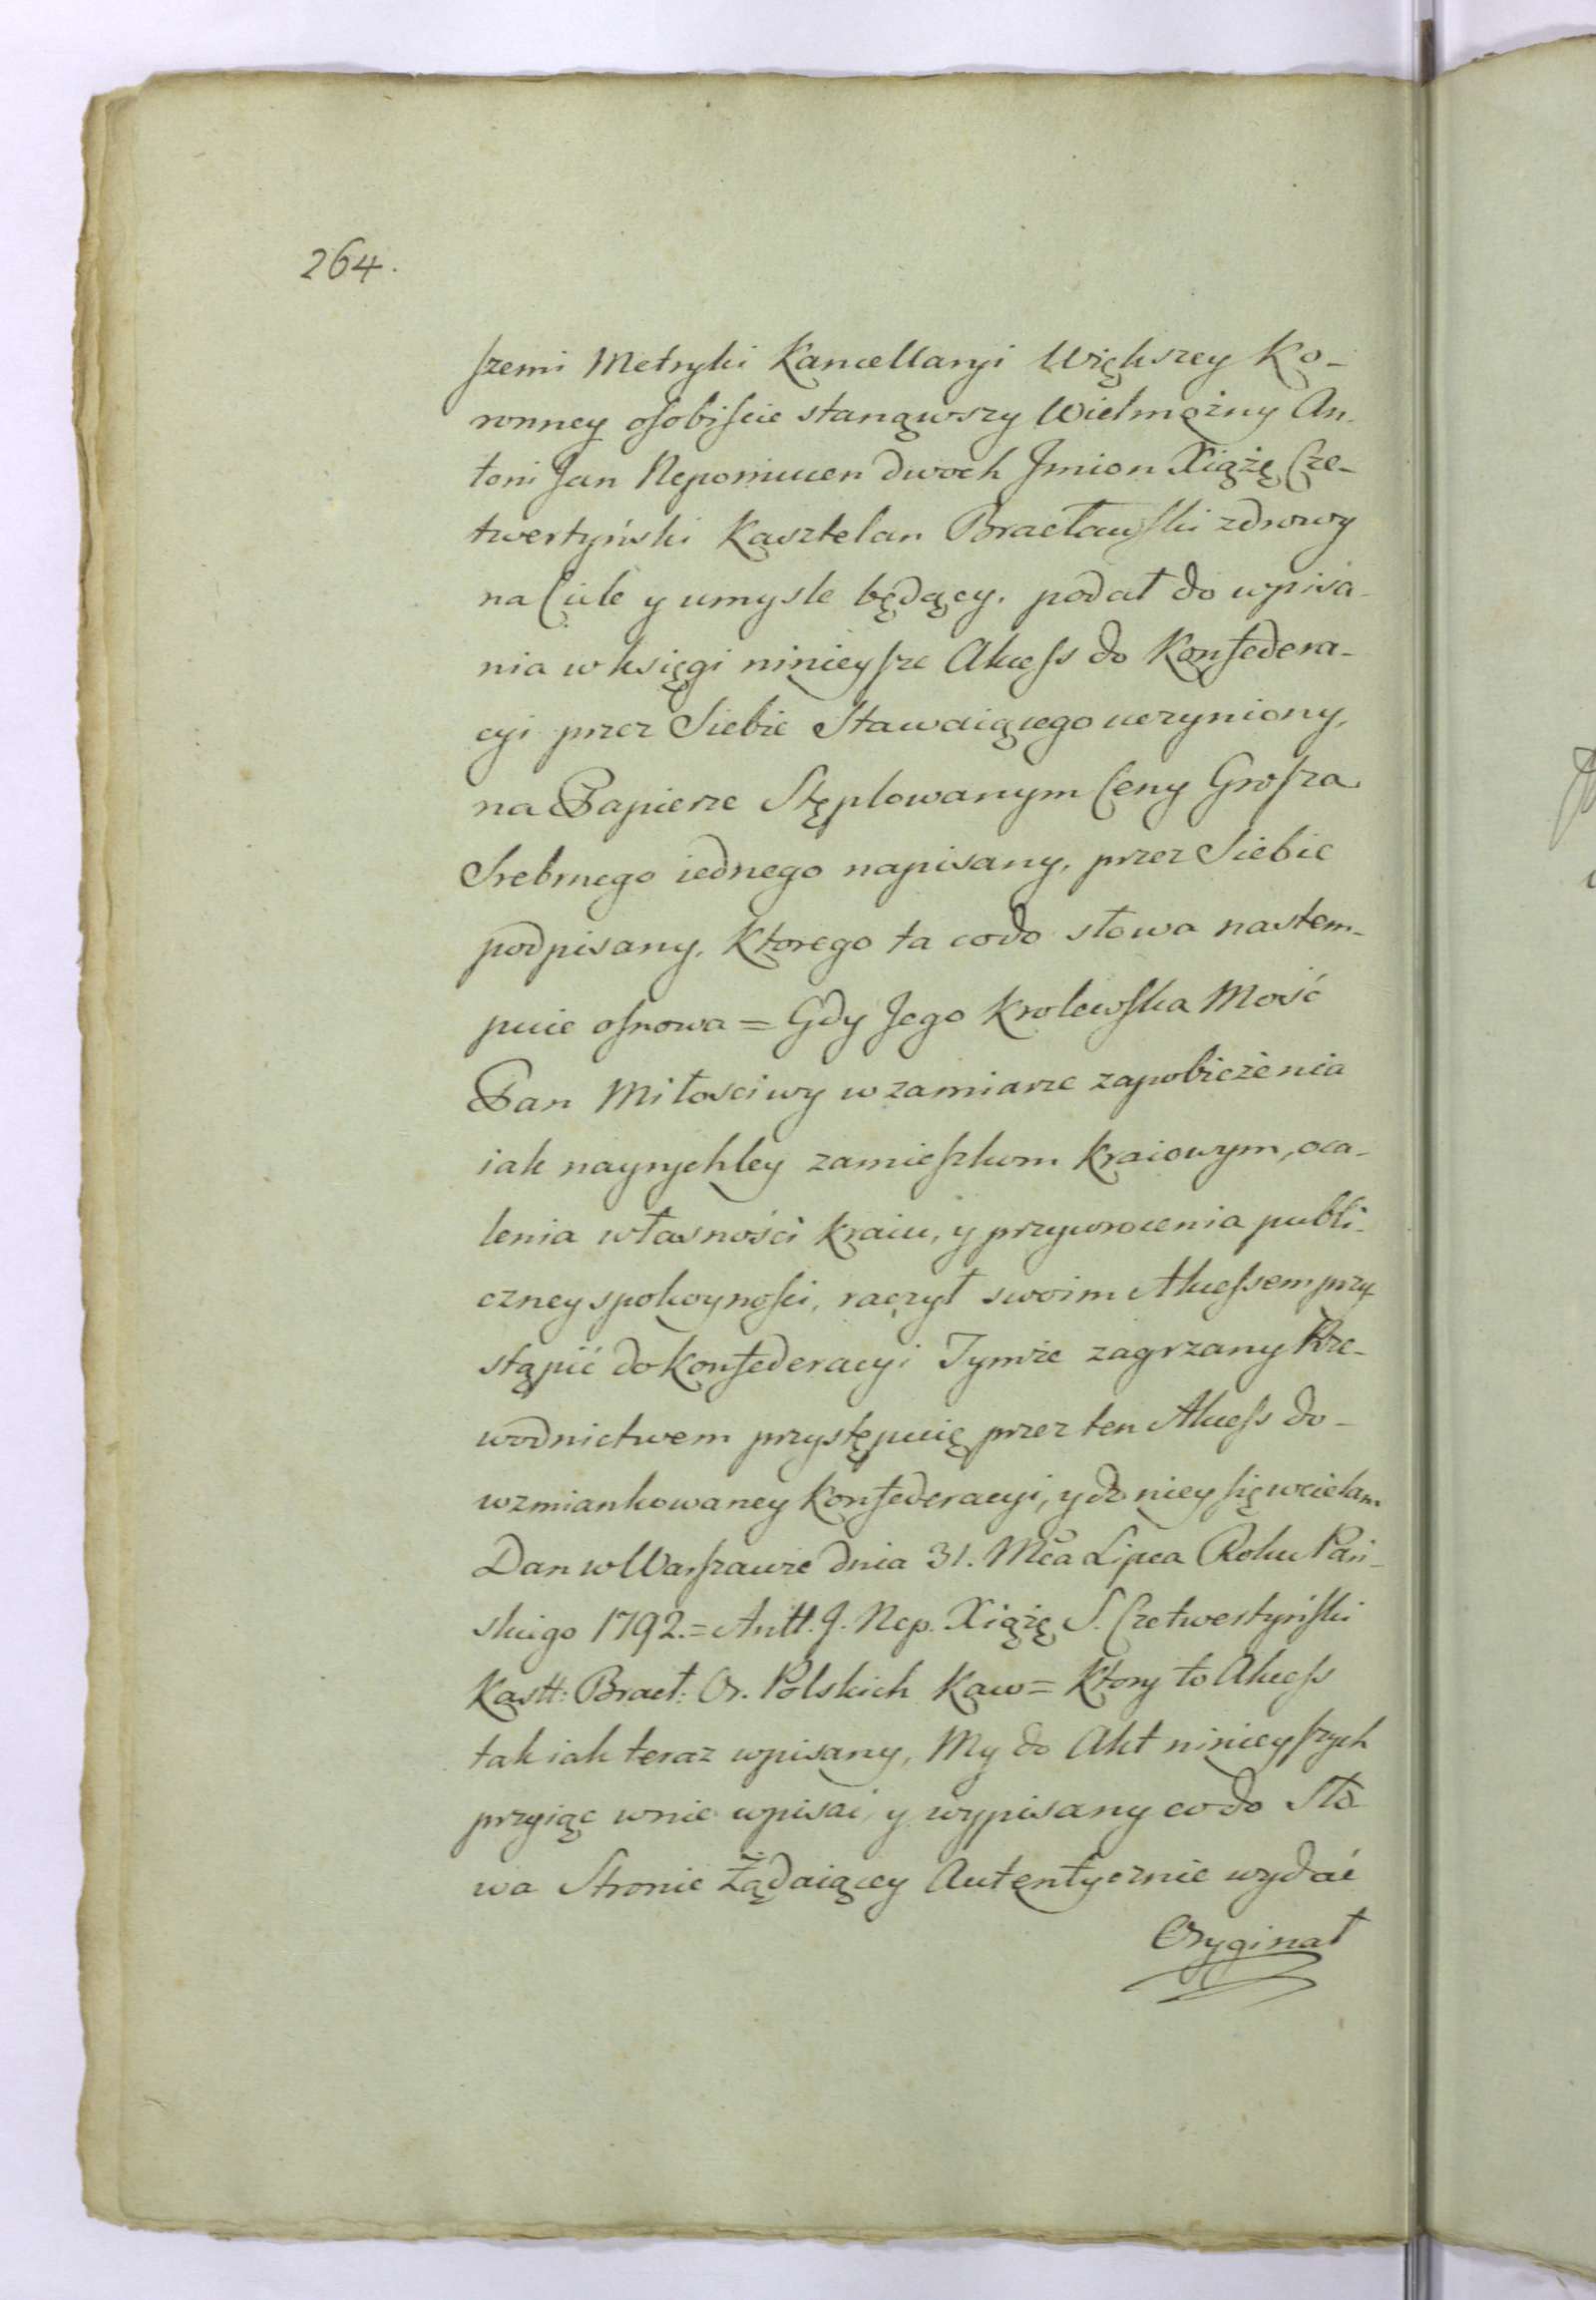 264.
szemi Metryki Kancellaryi Większey Ko-
ronney osobiscie stanąwszy Wielmożny An-
toni Jan Nepomucen dwoch Jmion Xiążę Cze-
twertyński Kasztelan Bracławski zdrowy
na Ciele y umysle będący, podał do wpisa-
nia w księgi ninieysze Akcess do Konfedera-
cyi przez Siebie Stawaiącego uczyniony,
na Papierze Stęplowanym Ceny Grosza
Srebrnego iednego napisany, przez Siebie
podpisany, Ktorego ta codo słowa nastem-
puie osnowa = Gdy Jego Krolewska Mość
Pan Miłosciwy w zamiarze zapobieżenia
iak nayrychley zamieszkom Kraiowym, oca-
lenia własności Kraiu, y przywrocenia publi-
czney spokoynosci, raczył swoim Akcessem przy
stąpić do Konfederacyi Tymże zagrzany Prze-
wodnictwem przystępuię przez ten Akcess do-
wzmiankowaney Konfederacyi, y do niey się wcielam
Dan w Warszawie dnia 31. Mca Lipca Roku Pań-
skiego 1792. = Antt. J. Nep. Xiążę S. Czetwertyński
Kastt: Bracł: Or. Polskich Kaw = Ktory to Akcess
tak iak teraz wpisany, My do Akt ninieyszych
przyiąc w nie wpisac, y wypisany co do Sło
wa Stronie Żądaiącey Autentycznie wydać
Oryginał